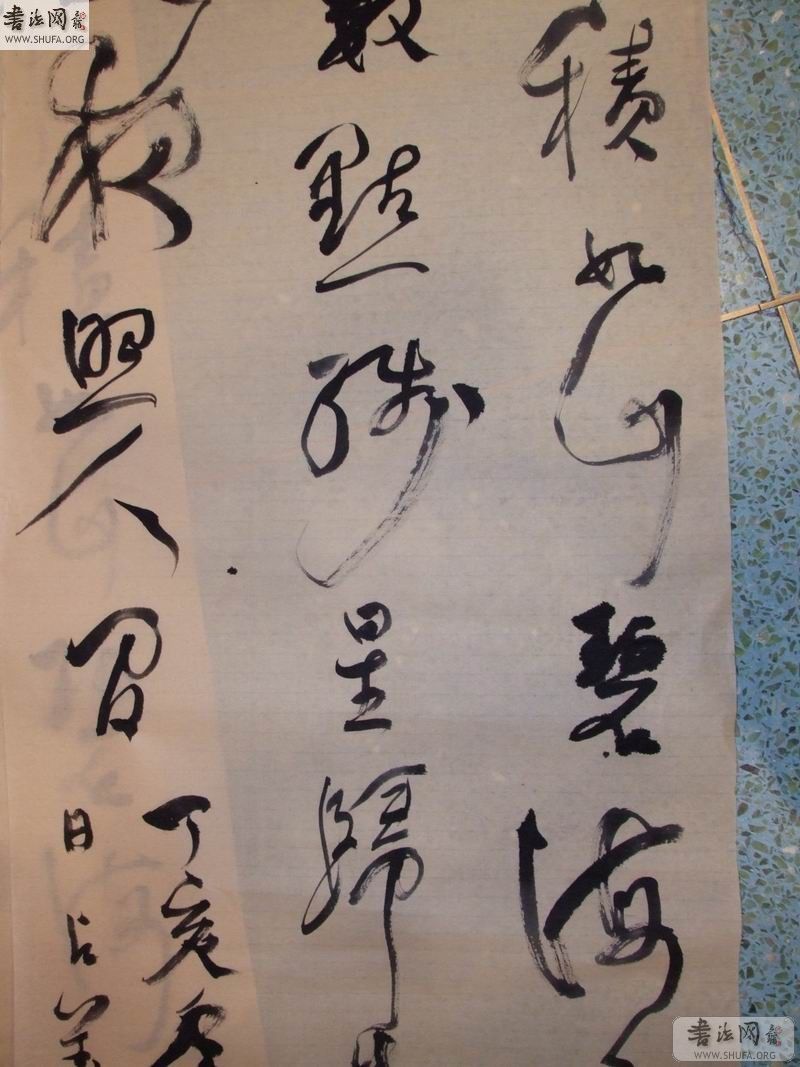 書法网
WWW.SHUFA.ORG
積如山碧海
數點殘星歸
夜照人間
丁亥
日
書法网
WWW.SHUFA.ORG